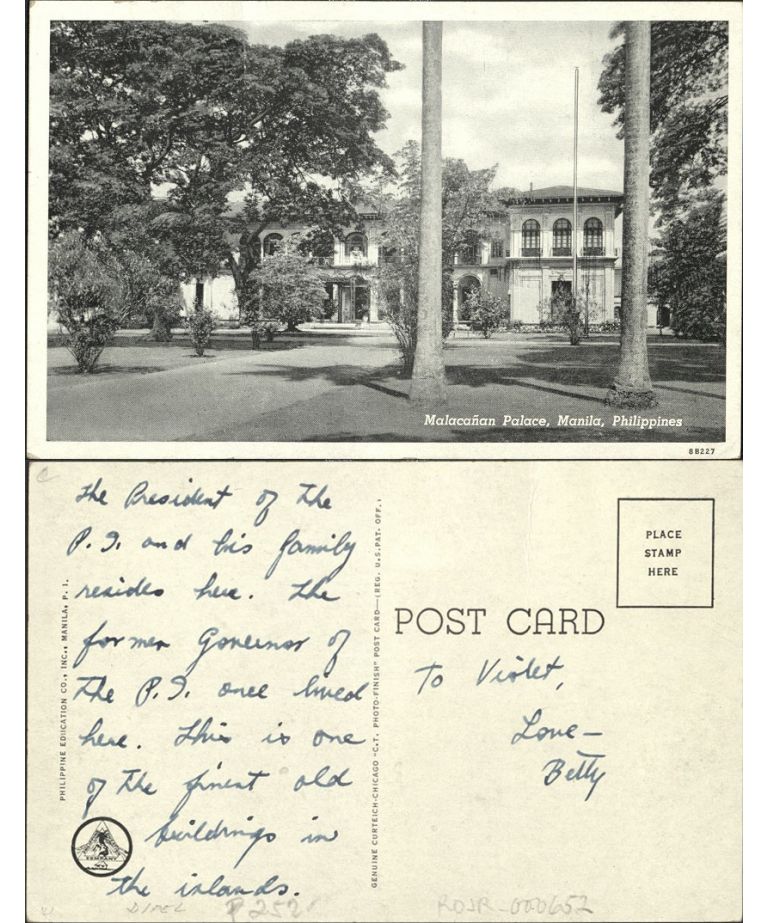 Malacañan Palace, Manila, Philippines
8B227
The President of the
P. I. and his family
resides here. The
former Governor of
the P.I. once lived
here. This is one
of the finest old
buildings in
the islands.
PHILIPPINE EDUCATION CO., INC., MANILA, P. I.
COMPANY
GENUINE CURTEICH-CHICAGO "C.T. PHOTO-FINISH" POST CARD—(REG. U.S. PAT. OFF.)
PLACE
STAMP
HERE
POST CARD
To Violet,
Love—
Betty
ROJR-000652